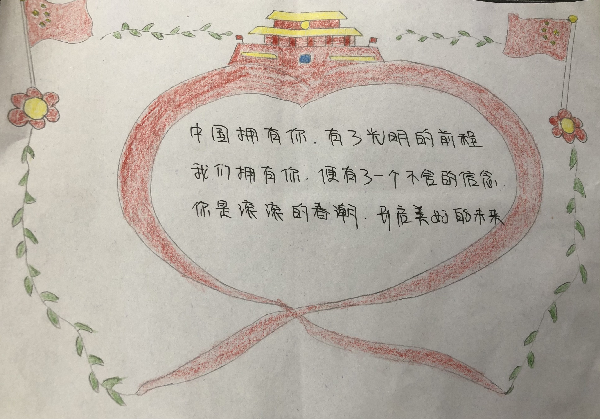 中国拥有你、有了光明的前程
我们拥有你、便有了一个不舍的信念、
你是滚滚的春潮、 美好的未来